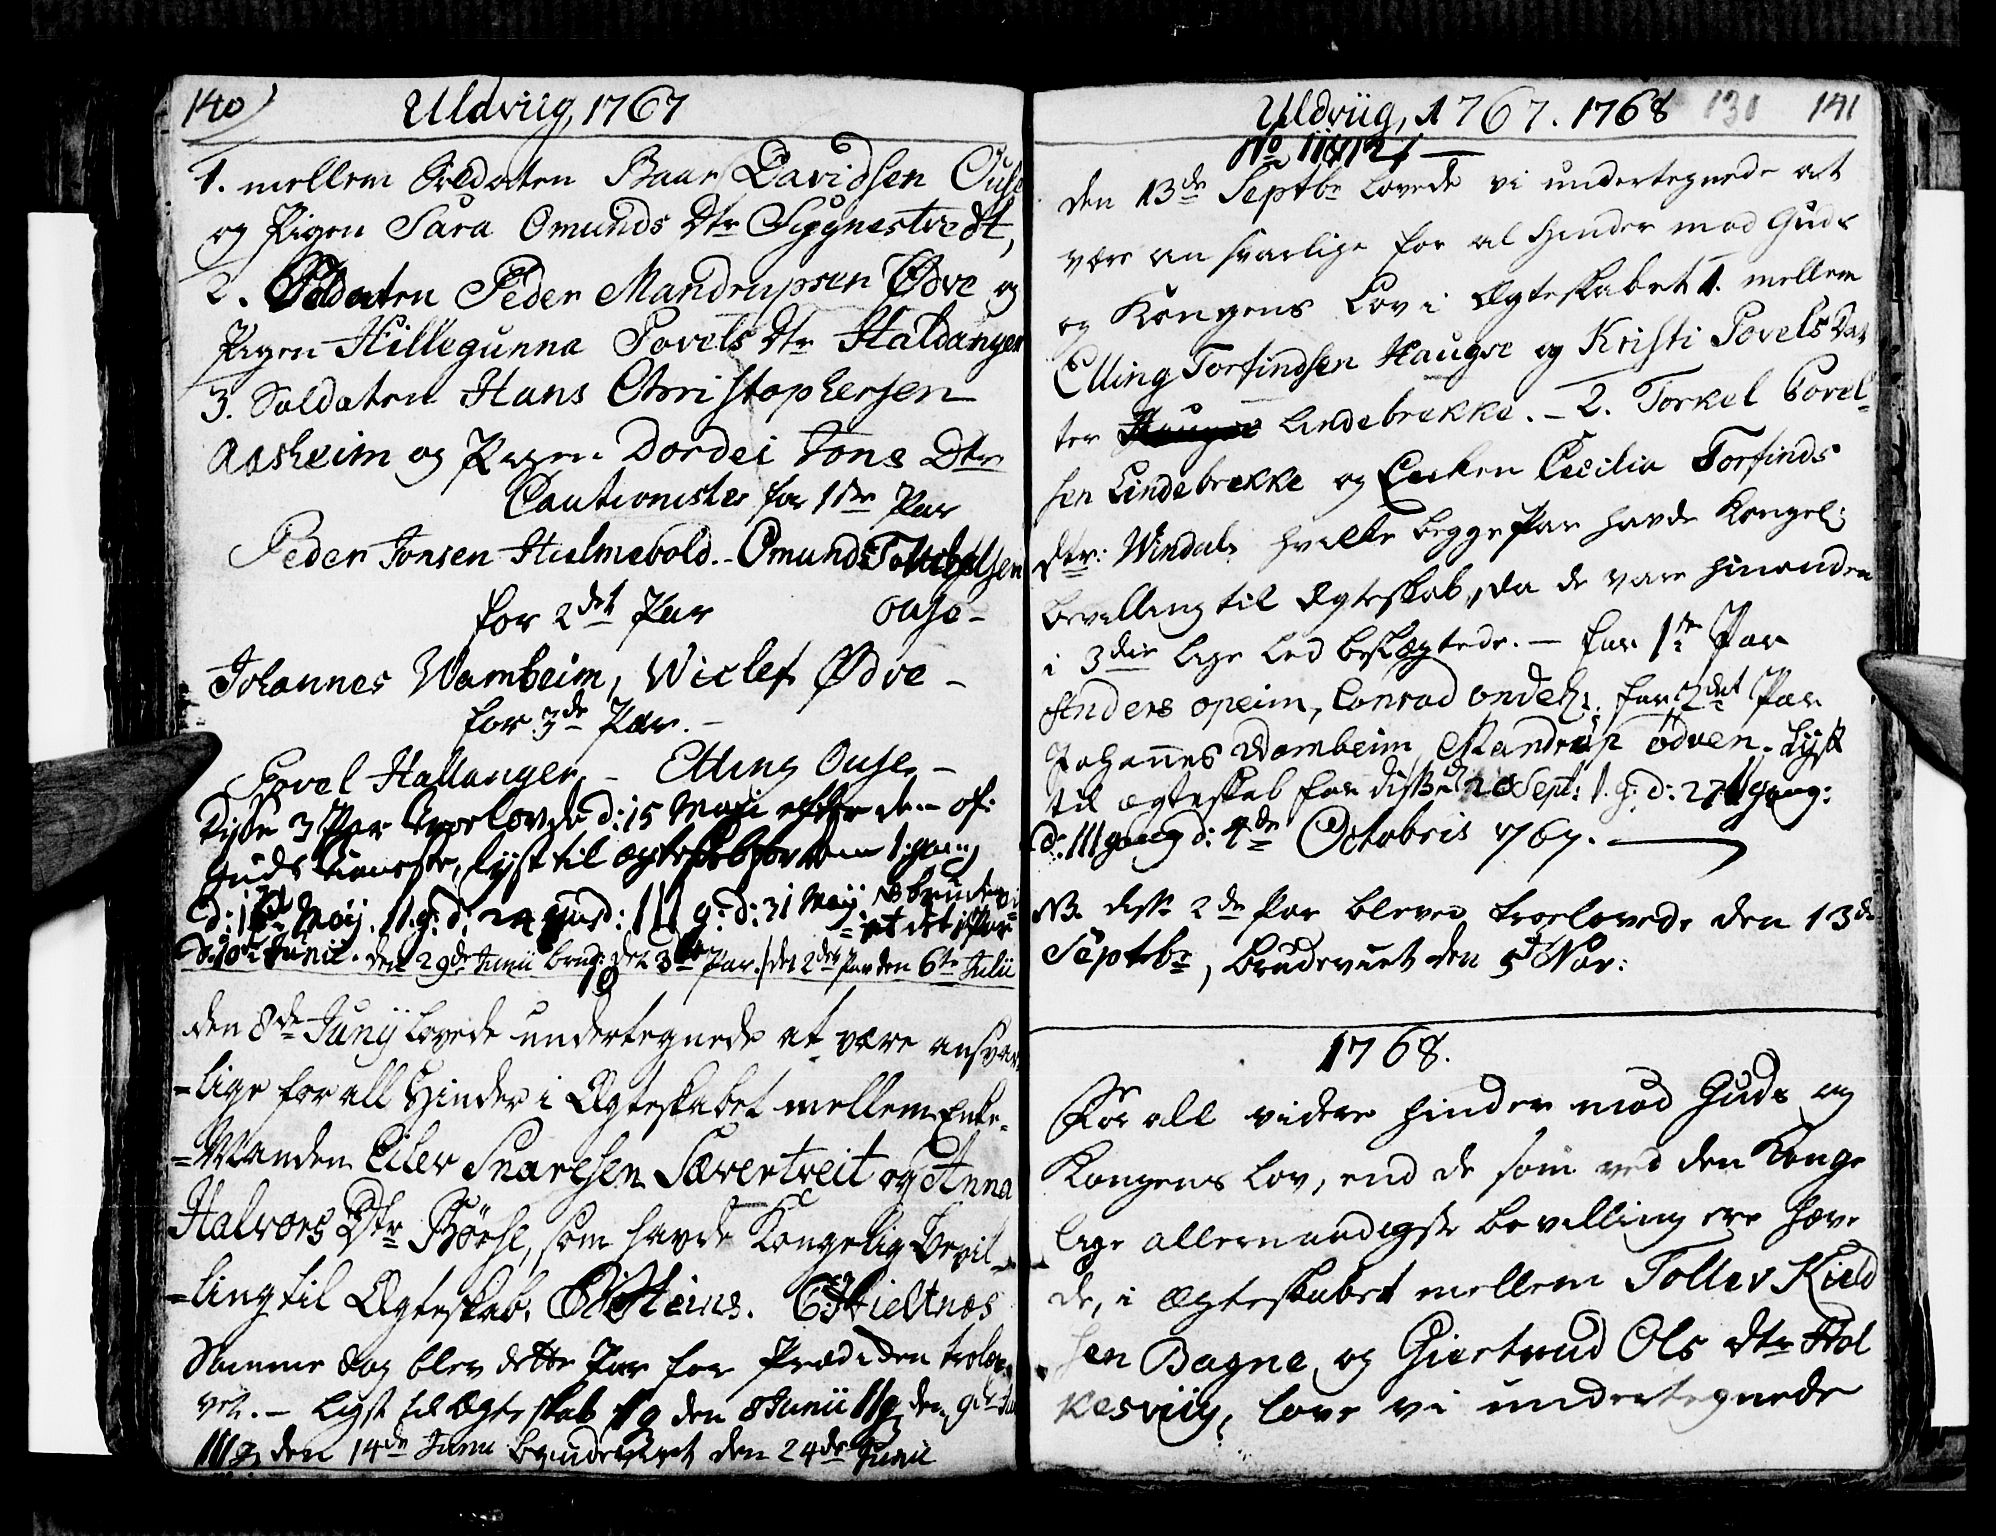 140)
Uldviig, 1767
1. mellem Soldaten Baar Davidsen Ouse
og Pigen Sara Omunds Dtr Sygnestvedt,
2. Soldaten Peder Mandrupsen Ødve og
Pigen Hillegunna Povels Dtr Haldanger
3. Soldaten Hans Christophersen
Aasheim og Pigen Dordei Jons Dtr
Cautionister for 1ste Par
Peder Jonsen Hielmevold. - Omund
for 2det Par Ouse -
Johannes Wambeim, Wiclef Ødve -
for 3de Par. -
Povel Hallanger, - Elling Ouse, -
Disse 3 Par troelovede d: 15 Maji efter den of:
Guds tieneste, lyst til ægteskab for dem I. gang
d: Maij. II. g: d: 24 III g: d: 31 Maij
Junii. den 29de Junii det 3die Par. det 2det Par den 6te Julii
den 8de Junij lovede undertegnede at være ansvar
-lige for all Hinder i Ægteskabet mellem Enke-
=Manden Eiler Snaresen Særertveit og Anna
Halvors Dtr Børse, som havde Kongelig Bevil-
=ling til Ægteskab. Hieltnæs
Samme dag blev dette Par for Prædiken trolo-
vet. - Lyst til Ægteskab I g den 8 Junii II g den
III g den 14de Junii brudeviet den 24de Junii
Uldviig, 1767. 1768 130 141
den 13de Septbr lovede vi undertegnede at
være ansvarlige for al Hinder mod Guds
og Kongens Lov i Ægteskabet 1. mellem
Elling Torfindsen Haugse og Kristi Povels Dat
ter Lindebrekke. - 2. Torkel Povel-
sen Lindebrekke og Enken Cecilia Torfinds
Dtr: Windal, hvilke begge Par havde Kongel:
bevilling til Ægteskab, da de vare hinanden
i 3die lige Led beslægtede. - for 1ste Par
Anders Opeim, Conrad for 2det Par
Johannes Wambeim, Mandrup Ødven. Lyst
til ægteskab for disse d 20 Sept: I. g: d: 27 II gang:
d. III gang d: 4de Octobris 1767.
NB. disse 2de Par bleve troelovede den 13de
Septbr, brudeviet den 5t Nov:
1768.
For all videre hinder mod Guds og
Kongens lov, end de som ved den Konge
lige allernaadigste bevilling ere hæve
de, i Ægteskabet mellem Tollev Kield
sen Bagne, og Giertrud Ols Dtr Hol
kesviig, love vi undertegnede